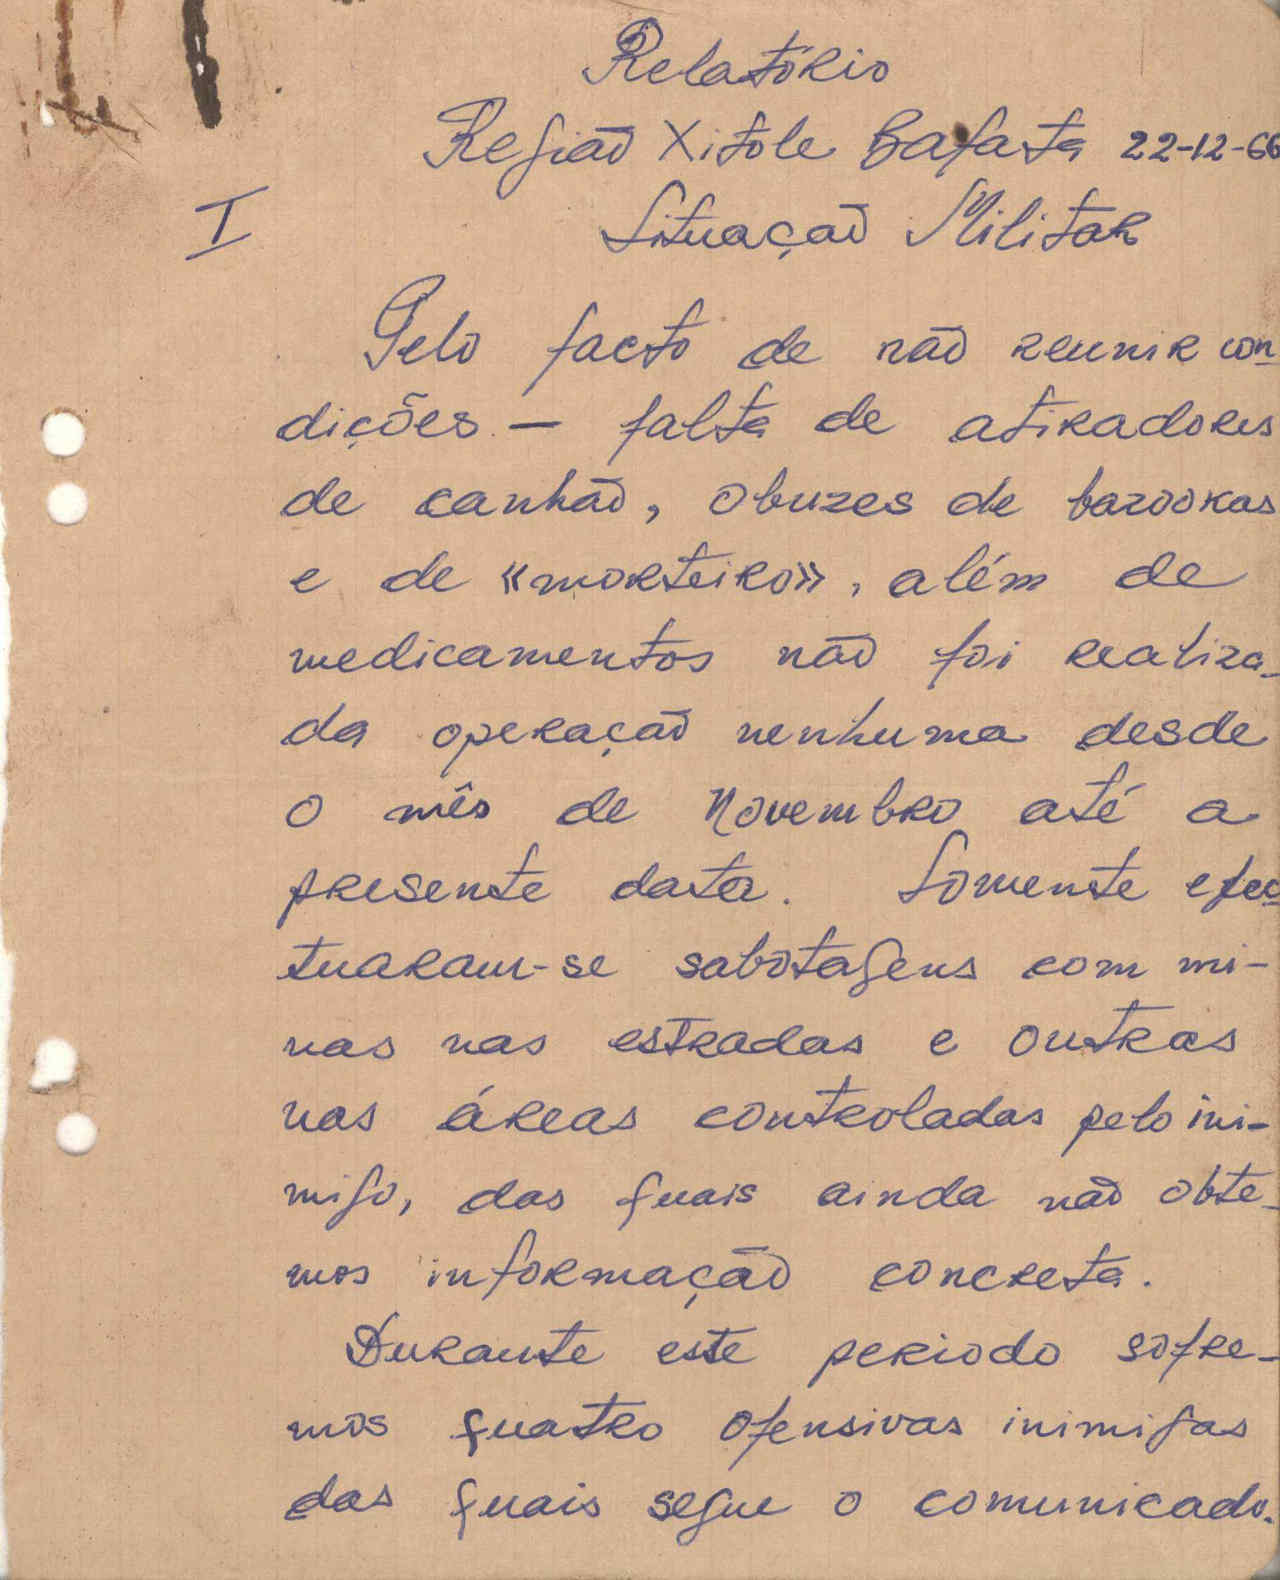 Relatório
Região Xitole Bafata 22-12-66
I
Situação Militar
Pelo facto de não reunir con-
dições - falta de atiradores
de canhão, obuzes de bazookas
e de «morteiro», além de
medicamentos não foi realiza-
da operação nenhuma desde
o mês de Novembro até a
presente data. Somente efec-
tuaram-se sabotagens com mi-
nas nas estradas e outras
nas áreas controladas pelo ini-
migo, das quais ainda não obte-
mos informação concreta.
Durante este periodo sofre-
mos quatro ofensivas inimigas
das quais segue o comunicado.